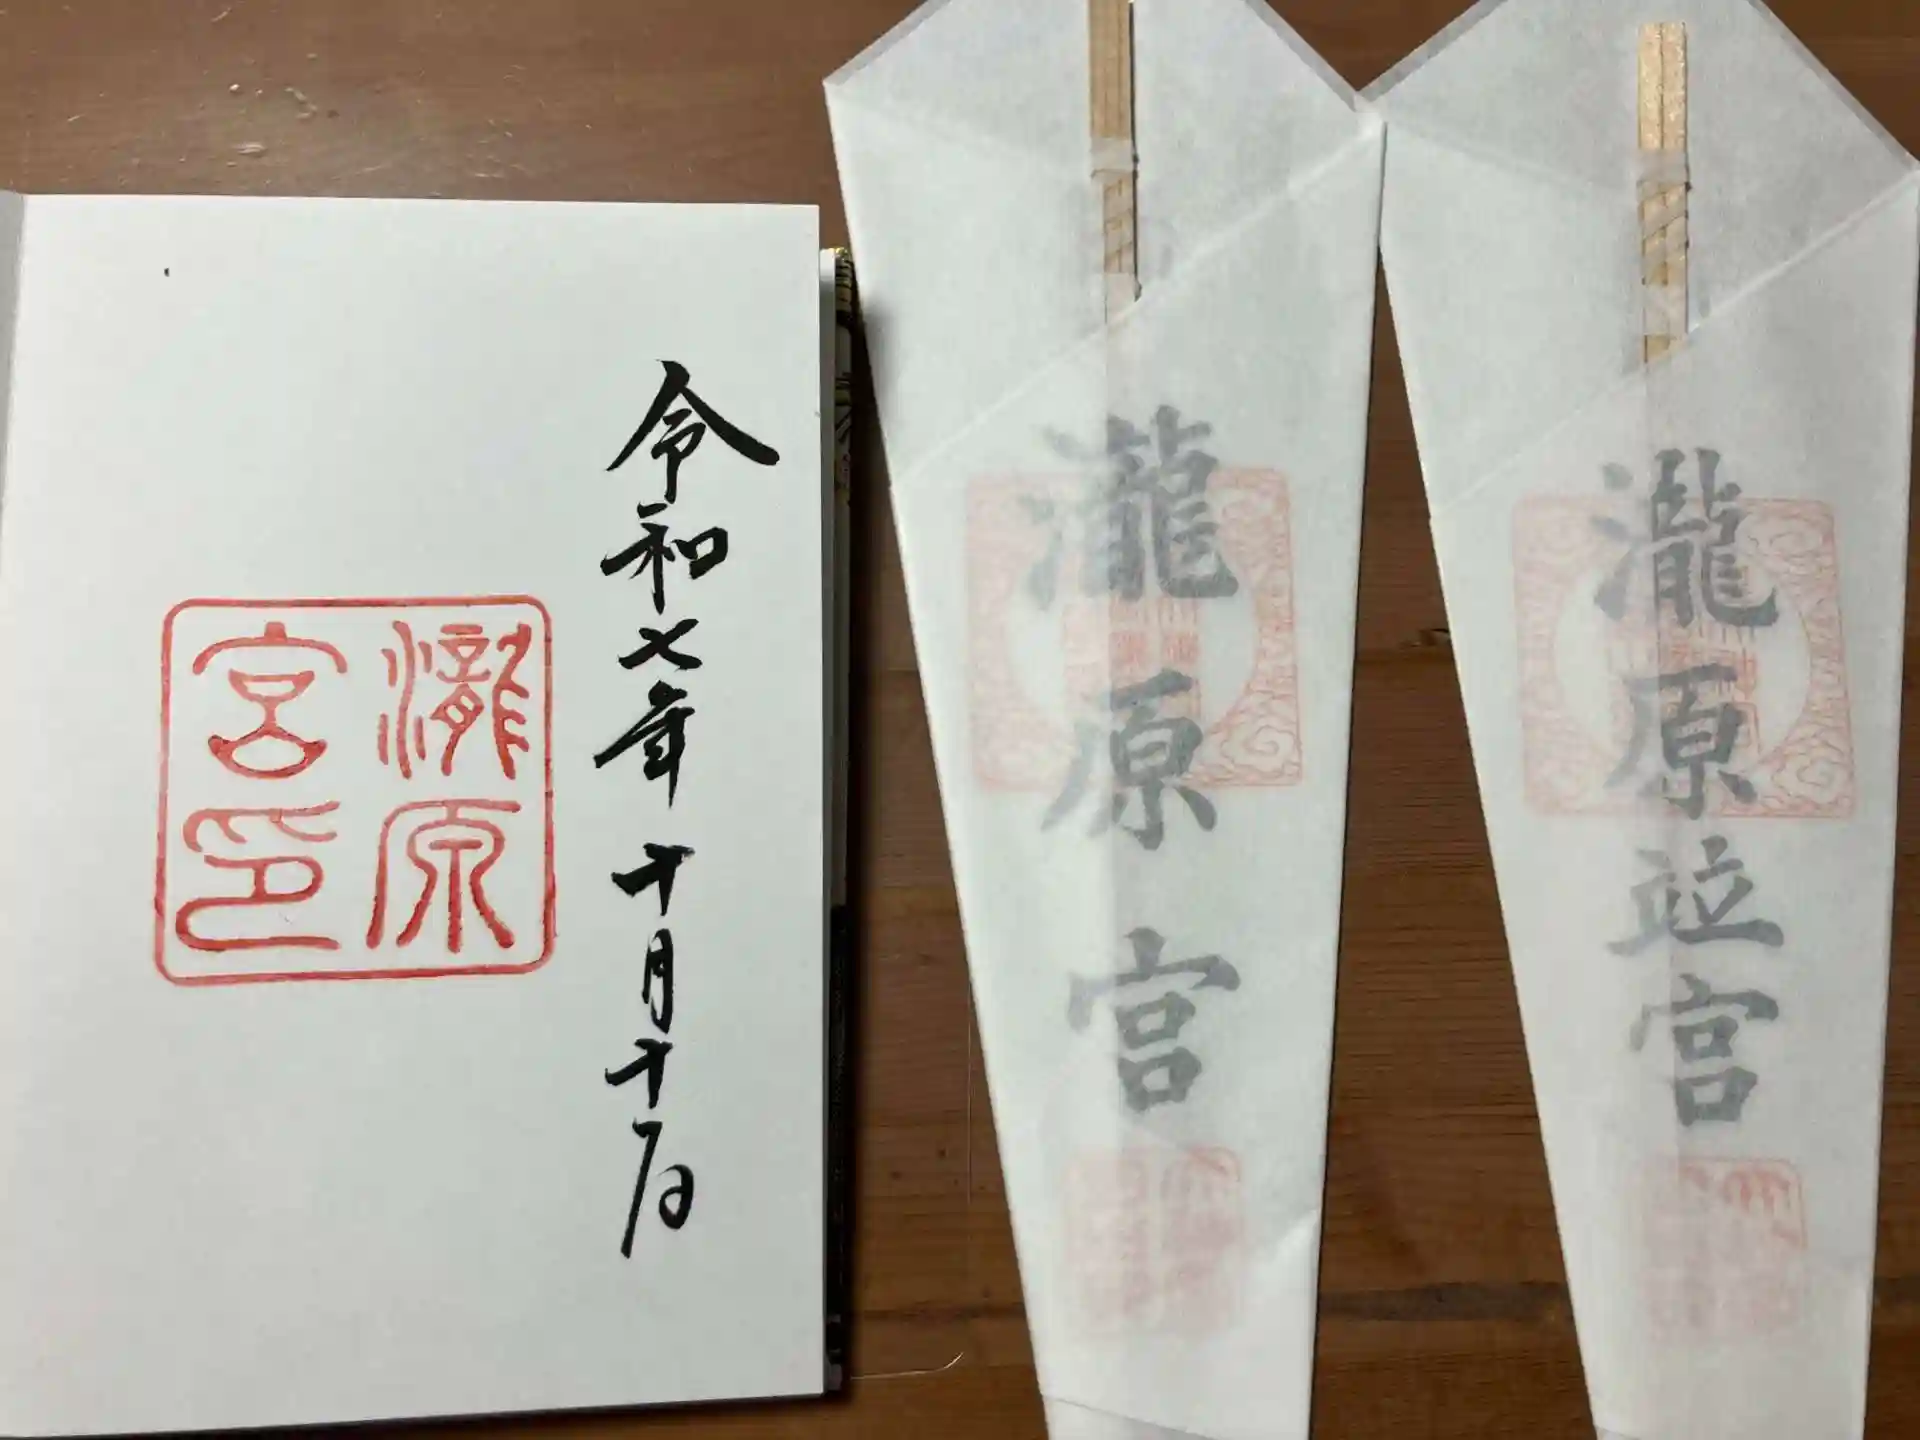 令和七年十月十日
瀧原
宮印
瀧原宮
瀧原竝宮